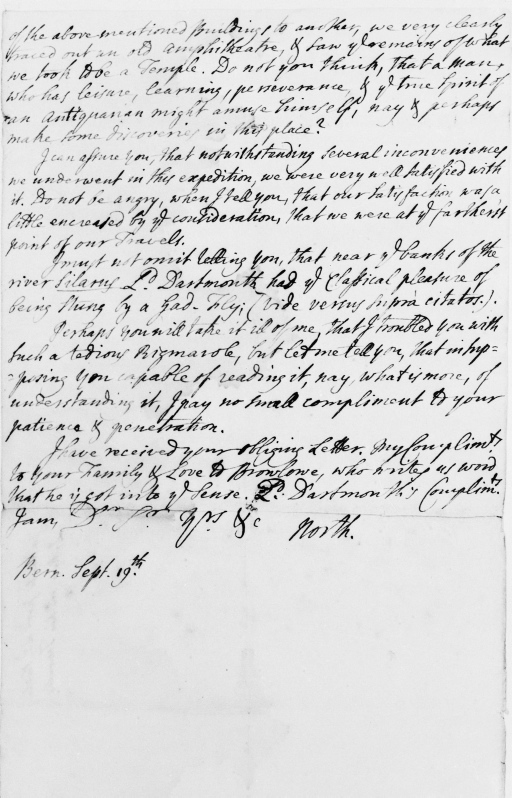 of the above mentioned Buildings to another, we very clearly
traced out an old Amphitheatre, & saw ye remains of what
we took to be a Temple. Do not you think, that a man,
who has leisure, learning, perseverance, & ye true Spirit of
an Antiquarian might amuse himself, nay & perhaps
make some discoveries in this place?
I can assure you, that notwithstanding several inconveniences
we underwent in this expedition, we were very well satisfied with
it. Do not be angry, when I tell you, that our satisfaction was a
little encreased by ye consideration, that we were at ye farthest
point of our Travels.
I must not omit telling you, that near ye banks of the
river Silarus Ld. Dartmouth had ye Classical pleasure of
being stung by a Gad-Fly; (vide versus supra citatos.).
Perhaps you will take it ill of me, that I troubled you with
such a tedious Rigmarole, but let me tell you, that in sup-
-posing you capable of reading it, nay, what is more, of
understanding it, I pay no small compliment to your
patience & penetration.
I have received your obliging Letter. My Complimts.
to your Family & Love to Brownlowe, who writes us word
that he is got into ye Sense. Ld. Dartmouth's Complimts.
I am, Dr Sr Yrs &c
North.
Bern. Sept. 19th.